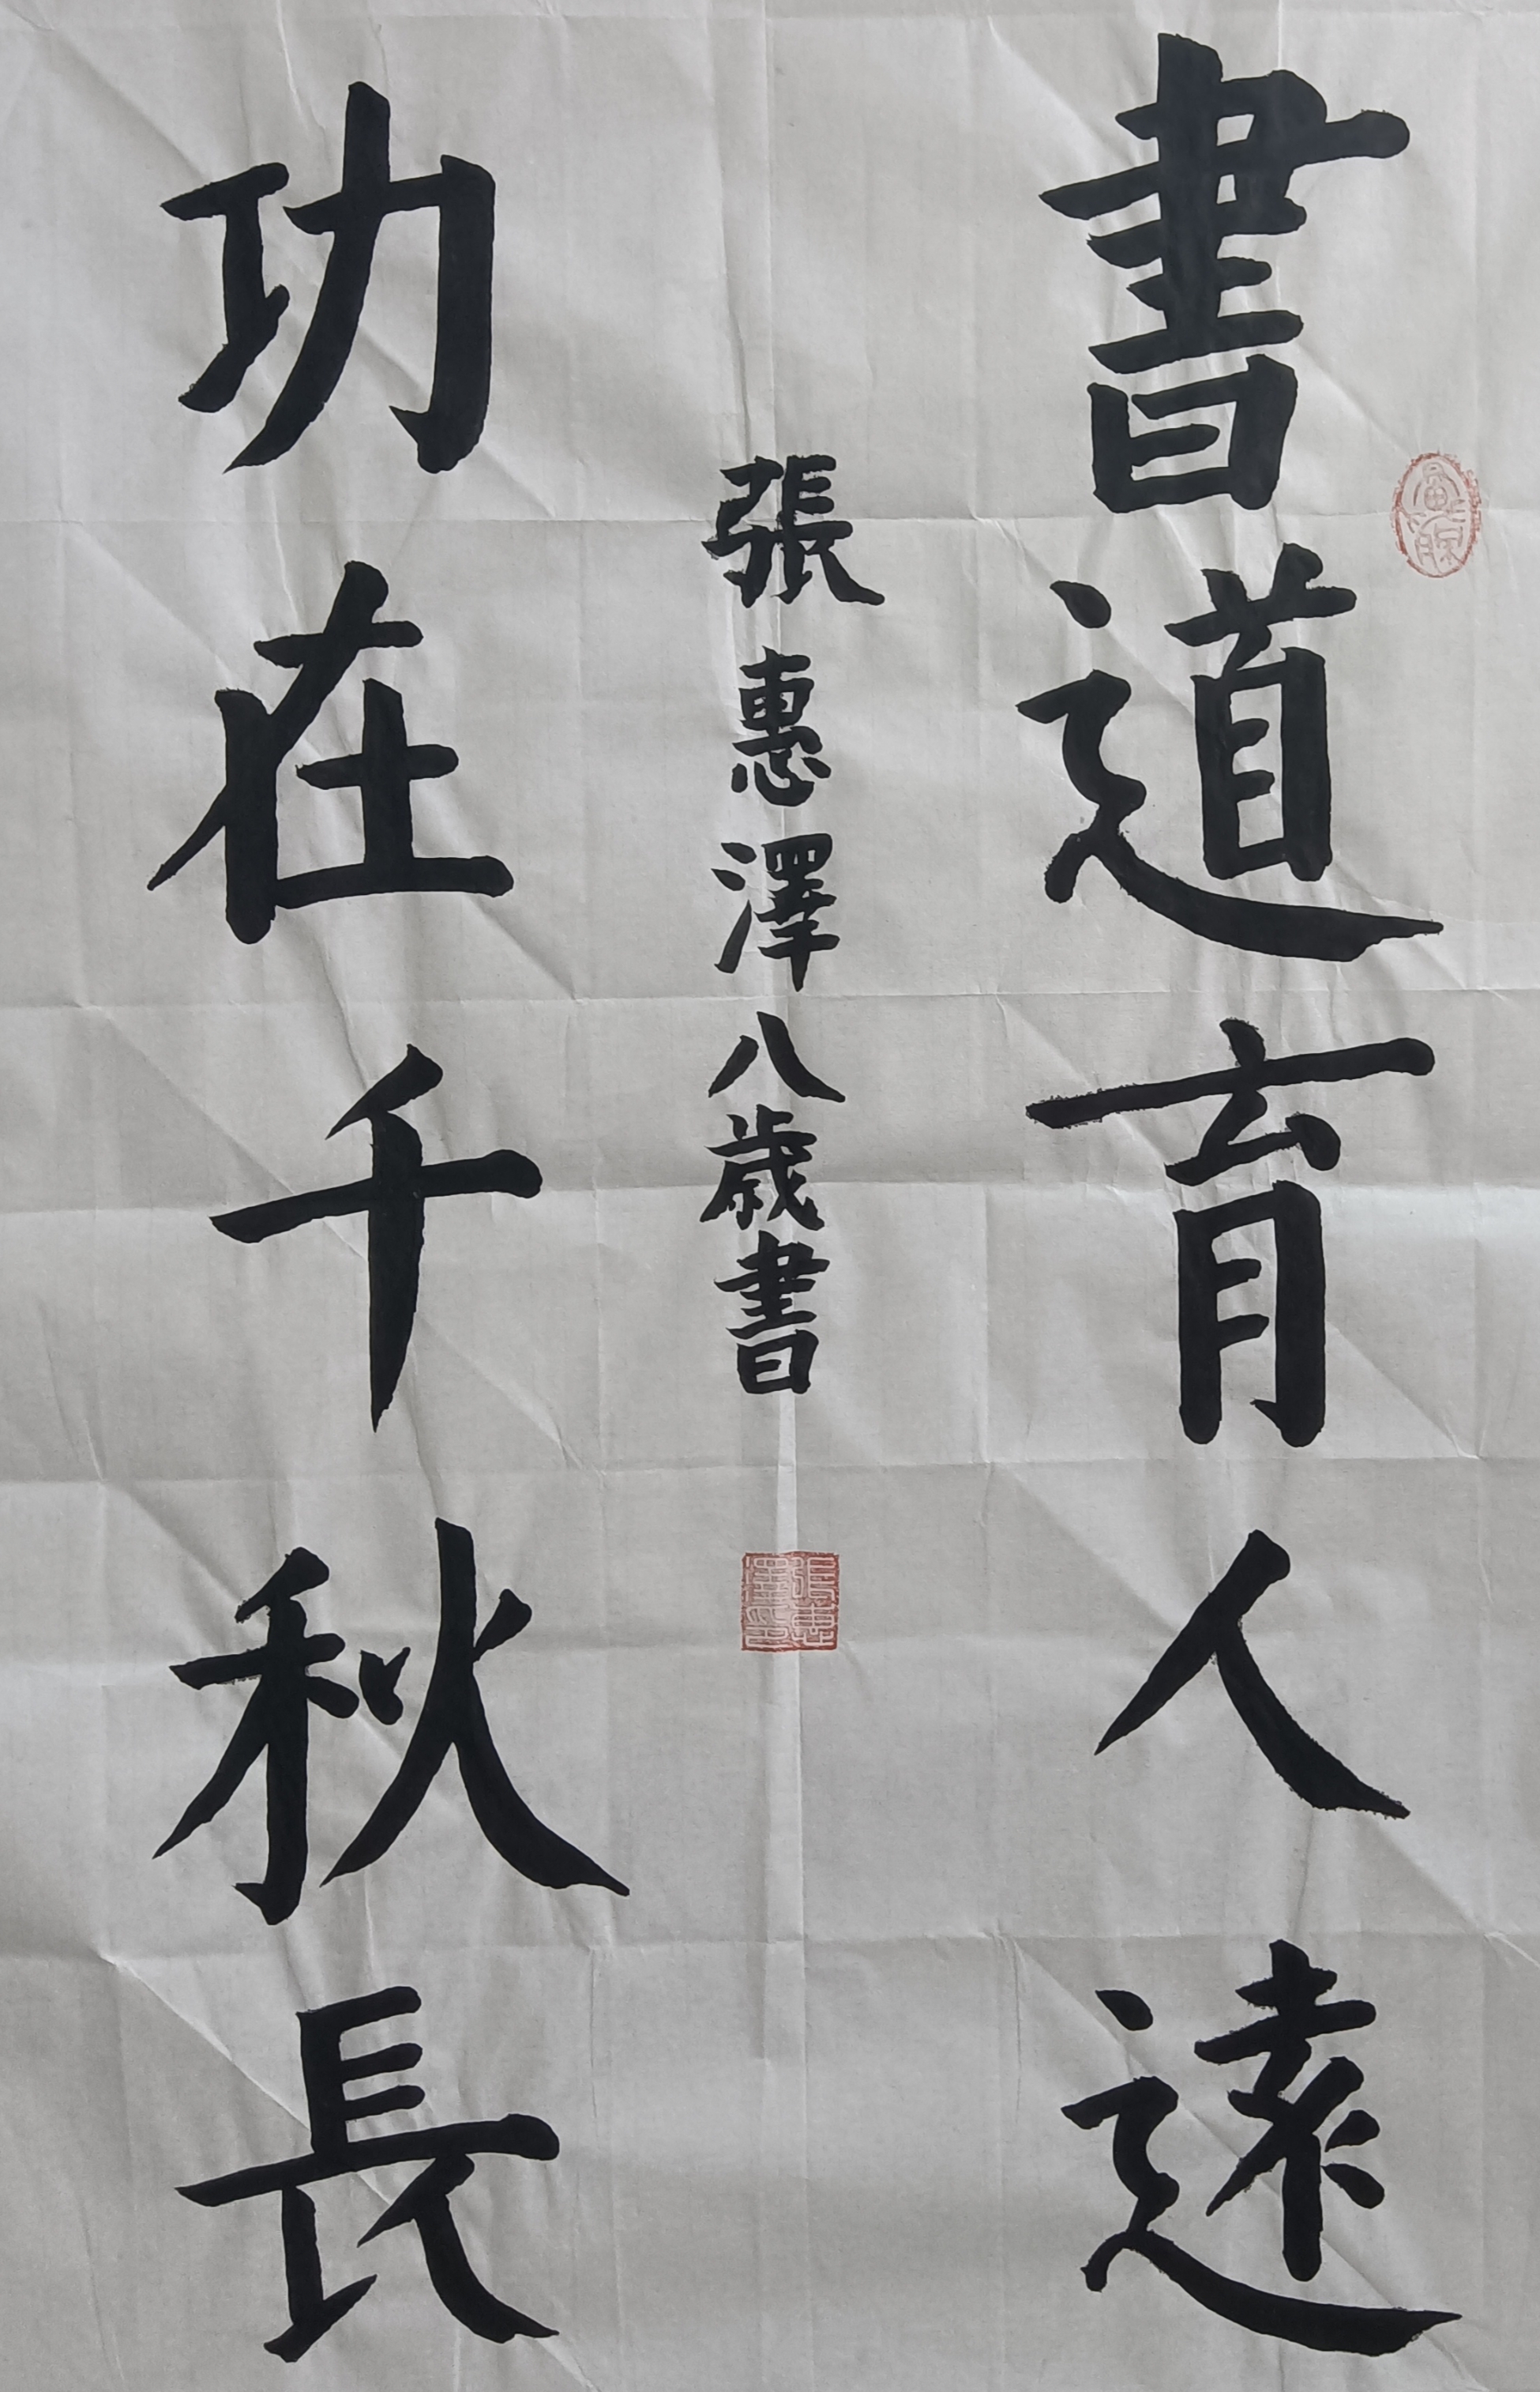 書道育人遠
功在千秋長
張惠澤八歲書
張惠澤印